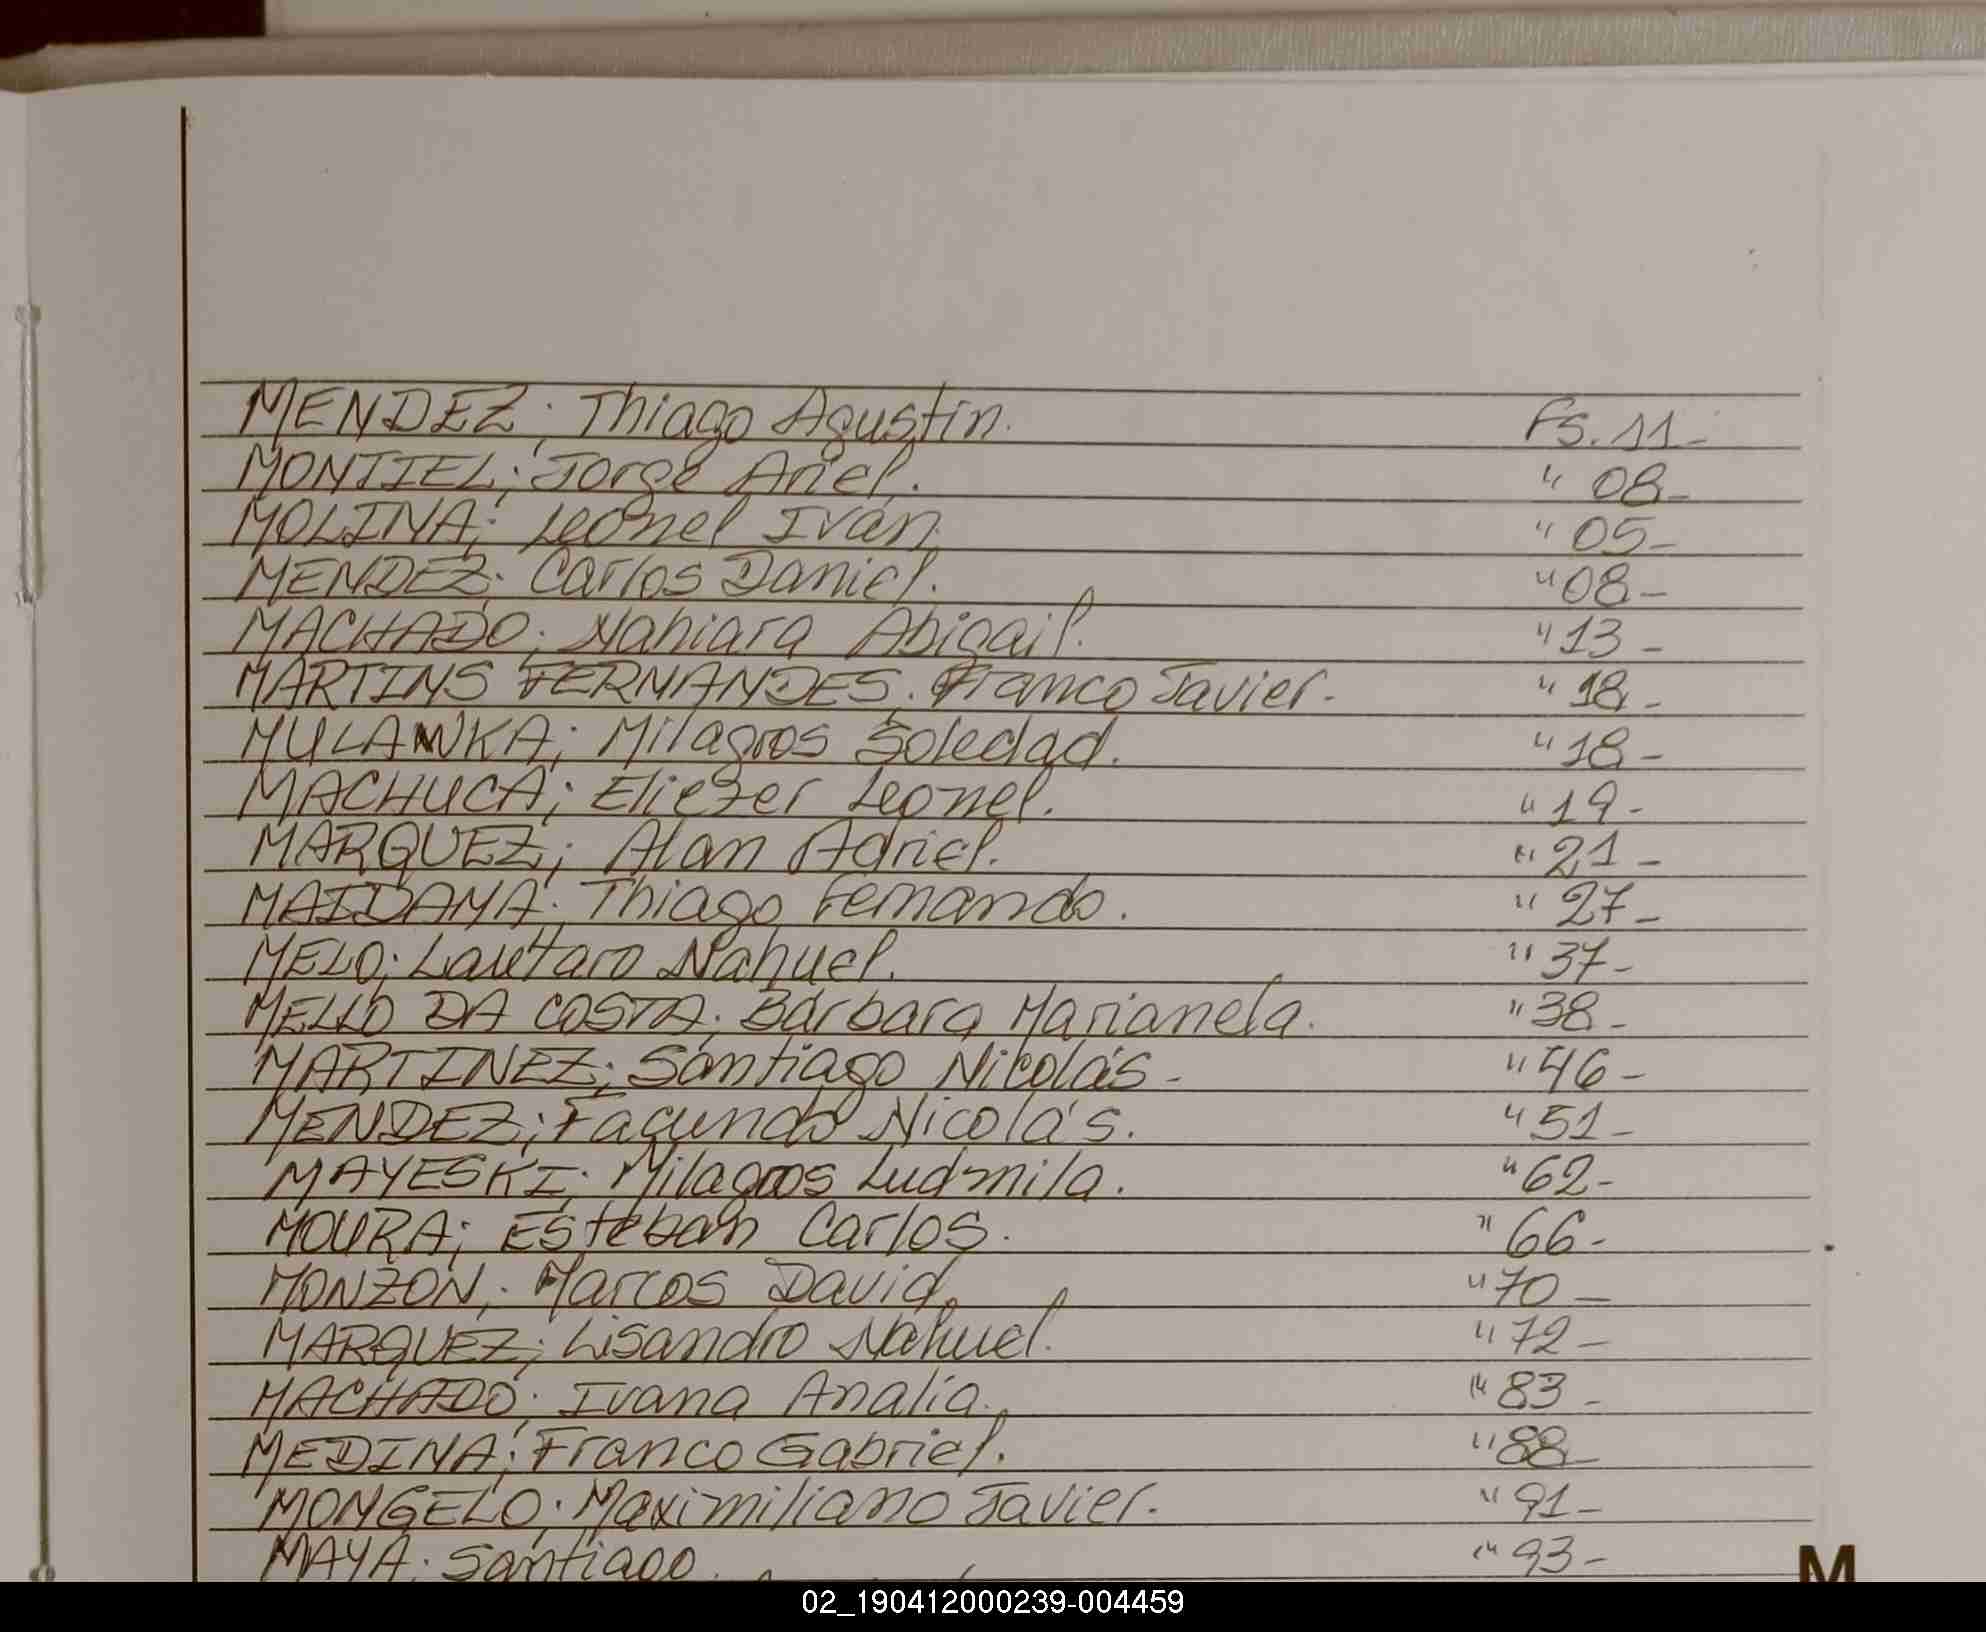 MENDEZ; Thiago Agustín. Fs. 11-
MONTIEL; Jorge Ariel. " 08-
MOLINA; Leonel Iván. " 05-
MENDEZ; Carlos Daniel. " 08-
MACHADO; Nahiara Abigail. " 13-
MARTINS FERNANDES; Franco Javier. " 18-
MULAWKA; Milagros Soledad. " 18-
MACHUCA; Eliezer Leonel. " 19-
MARQUEZ; Alan Adriel. " 21-
MAIDANA; Thiago Fernando. " 27-
MELO; Lautaro Nahuel. " 37-
MELLO DA COSTA; Bárbara Marianela. " 38-
MARTINEZ; Santiago Nicolás- " 46-
MENDEZ; Facundo Nicolás. " 51-
MAYESKI; Milagros Ludmila. " 62-
MOURA; Esteban Carlos. " 66-
MONZON; Marcos David. " 70-
MARQUEZ; Lisandro Nahuel. " 72-
MACHADO; Ivana Analía. " 83-
MEDINA; Franco Gabriel. " 88-
MONGELO; Maximiliano Javier. " 91-
MAYA; Santiago. " 93-
M
02_190412000239-004459